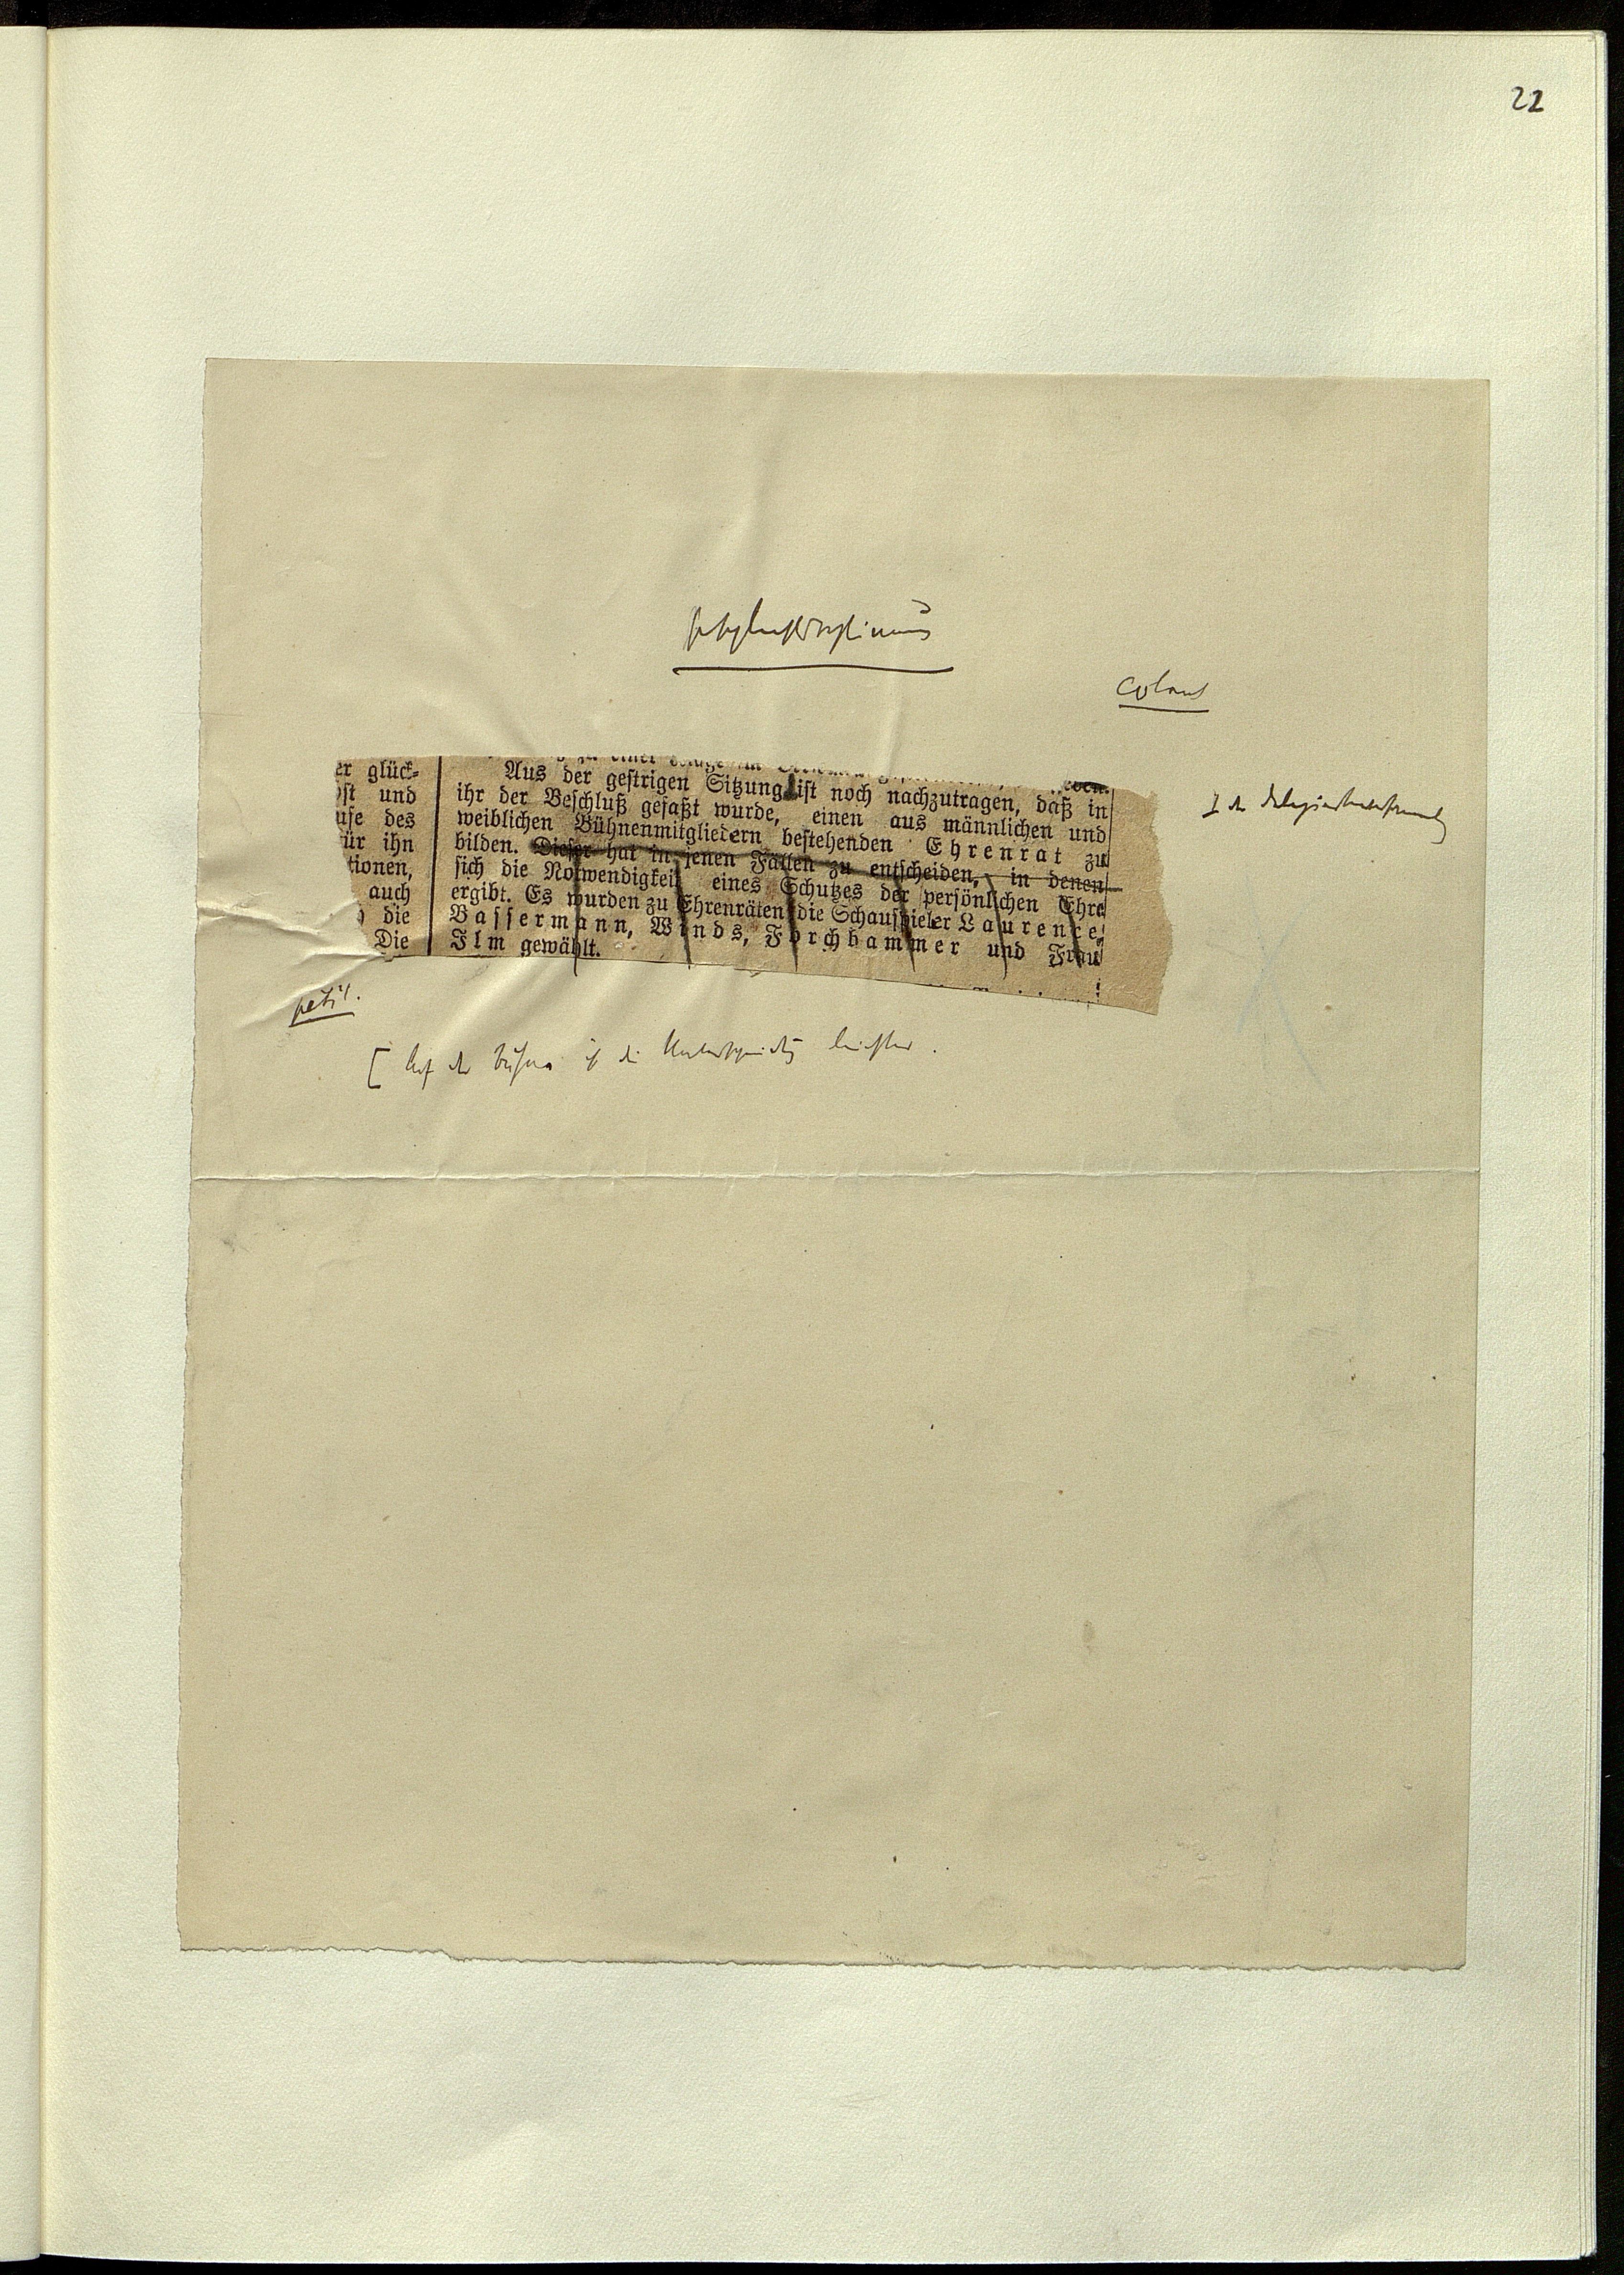 22
Colonel
er glück-
ost und
use des
ür ihn
tionen,
auch
die
Die
Aus der gestrigen Sitzung ist noch nachzutragen, daß in
ihr der Beschluß gefaßt wurde, einen aus männlichen und
weiblichen Bühnenmitgliedern bestehenden Ehrenrat zu
bilden. Dieser hat in jenen Fällen zu entscheiden, in denen
sich die Notwendigkeit eines Schutzes der persönlichen Ehre
ergibt. Es wurden zu Ehrenräten die Schauspieler Laurence,
Bassermann, Winds, Forchhammer und Frau
Ilm gewählt.
I der Delegiertenversammlung
petit.
[ Auf der Bühne ist die Unterscheidung leichter.